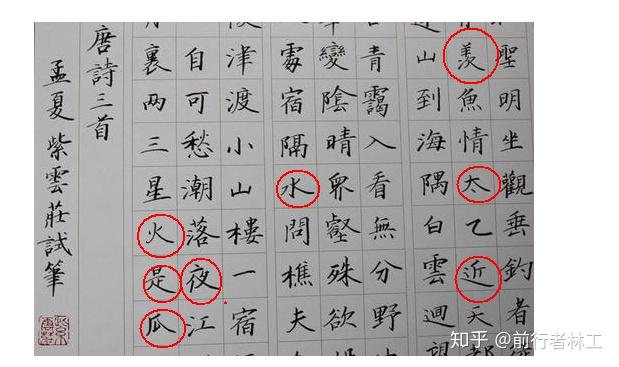 聖明坐觀垂釣者
羨魚情太乙近天都
山到海隅白雲迴望
青靄入看無分野
變陰晴眾壑殊欲
處宿隔水問樵夫
津渡小山樓一宿
自可愁潮落夜江
裏兩三星火是瓜
唐詩三首
孟夏紫雲莊試筆
知乎 @前行者林工